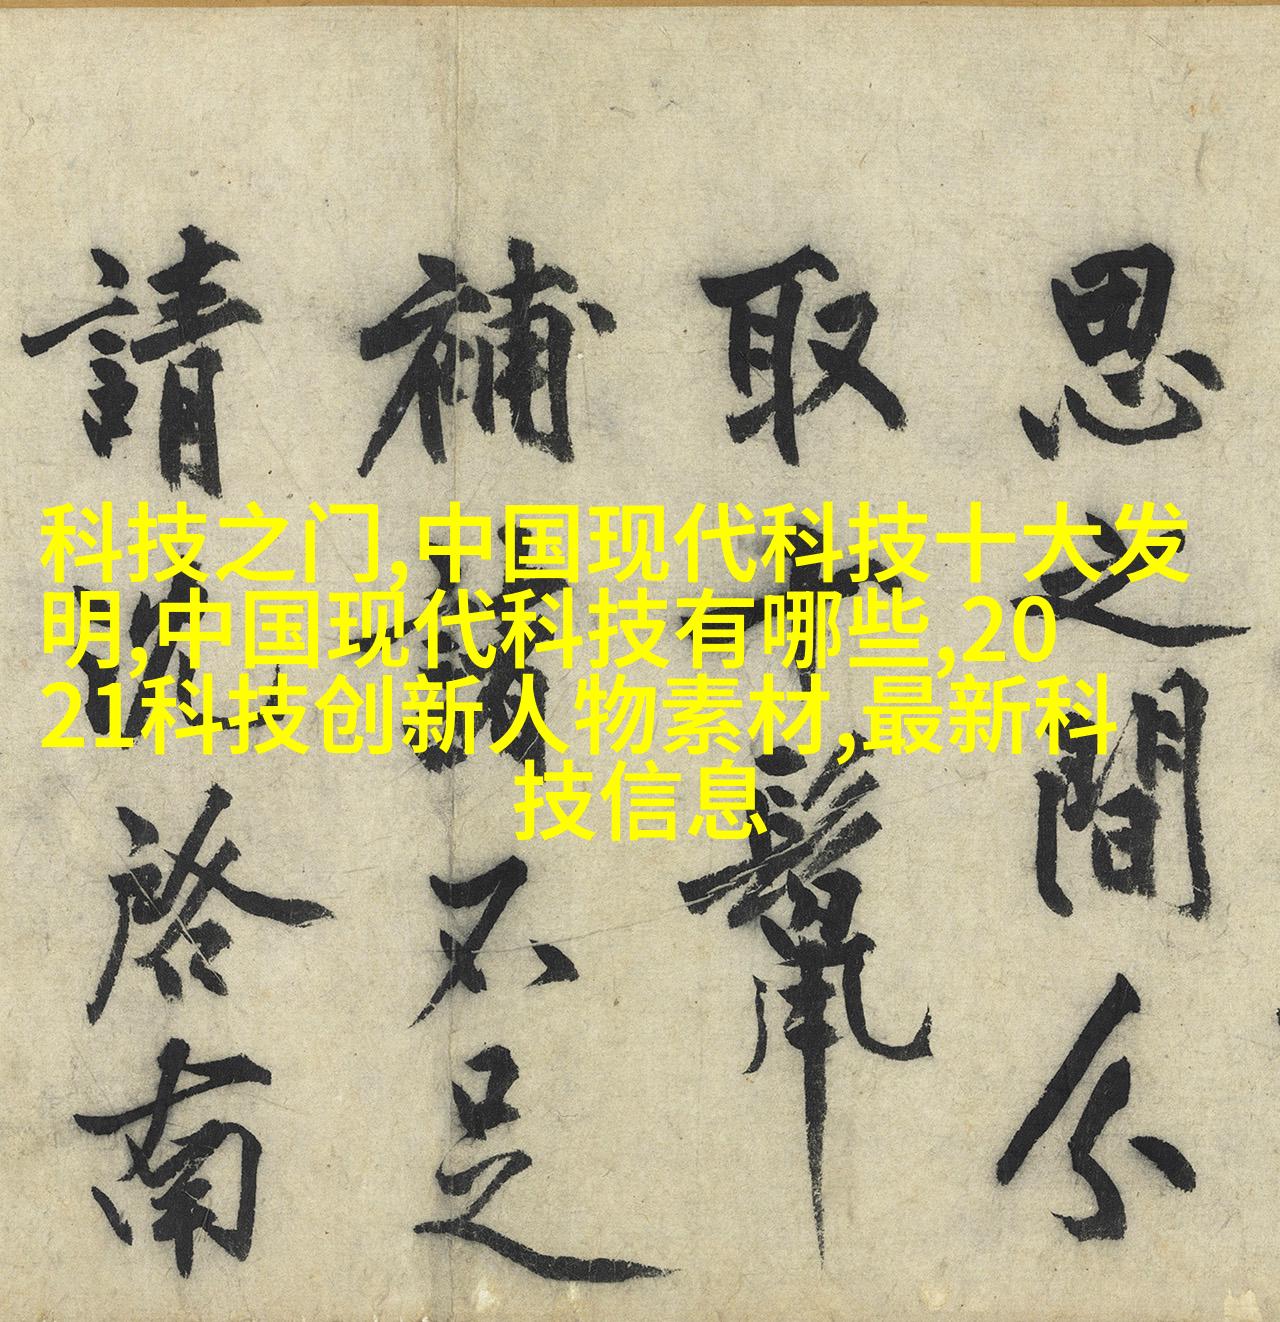 科技之门,中国现代科技十大发
明,中国现代科技有哪些,20
21科技创新人物素材,最新科
技信息
思之間分
取
補不足
請啓南